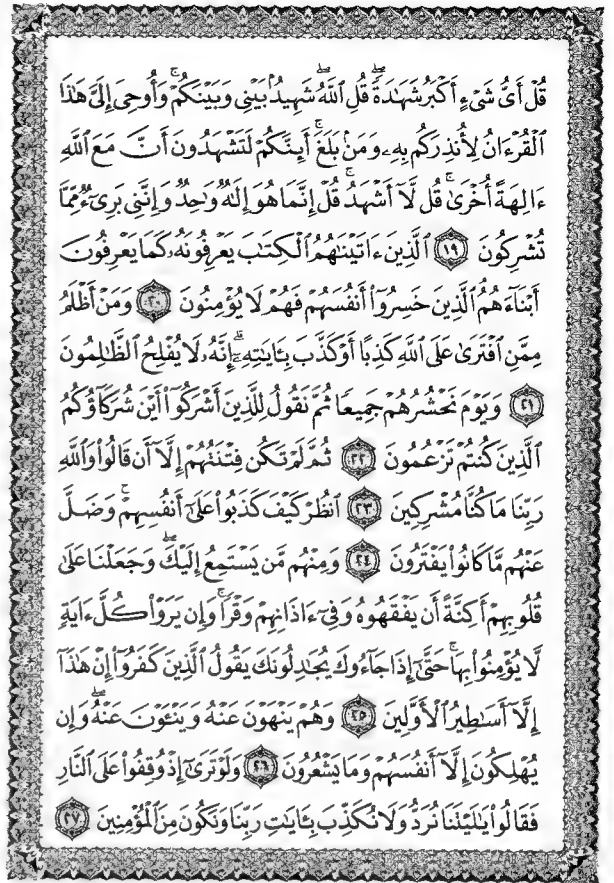 قُلْ أَيُّ شَيْءٍ أَكْبَرُ شَهَٰدَةً ۖ قُلِ ٱللَّهُ ۖ شَهِيدٌۢ بَيْنِي وَبَيْنَكُمْ ۚ وَأُوحِىَ إِلَىَّ هَٰذَا
ٱلْقُرْءَانُ لِأُنذِرَكُم بِهِۦ وَمَنۢ بَلَغَ ۚ أَئِنَّكُمْ لَتَشْهَدُونَ أَنَّ مَعَ ٱللَّهِ
ءَالِهَةً أُخْرَىٰ ۚ قُل لَّآ أَشْهَدُ ۚ قُلْ إِنَّمَا هُوَ إِلَٰهٌ وَٰحِدٌ وَإِنَّنِى بَرِىٓءٌ مِّمَّا
تُشْرِكُونَ ١٩ ٱلَّذِينَ ءَاتَيْنَٰهُمُ ٱلْكِتَٰبَ يَعْرِفُونَهُۥ كَمَا يَعْرِفُونَ
أَبْنَآءَهُمُ ٱلَّذِينَ خَسِرُوٓا۟ أَنفُسَهُمْ فَهُمْ لَا يُؤْمِنُونَ ٢٠ وَمَنْ أَظْلَمُ
مِمَّنِ ٱفْتَرَىٰ عَلَى ٱللَّهِ كَذِبًا أَوْ كَذَّبَ بِـَٔايَٰتِهِۦٓ ۗ إِنَّهُۥ لَا يُفْلِحُ ٱلظَّٰلِمُونَ
٢١ وَيَوْمَ نَحْشُرُهُمْ جَمِيعًا ثُمَّ نَقُولُ لِلَّذِينَ أَشْرَكُوٓا۟ أَيْنَ شُرَكَآؤُكُمُ
ٱلَّذِينَ كُنتُمْ تَزْعُمُونَ ٢٢ ثُمَّ لَمْ تَكُن فِتْنَتُهُمْ إِلَّآ أَن قَالُوا۟ وَٱللَّهِ
رَبِّنَا مَا كُنَّا مُشْرِكِينَ ٢٣ ٱنظُرْ كَيْفَ كَذَبُوا۟ عَلَىٰٓ أَنفُسِهِمْ ۚ وَضَلَّ
عَنْهُم مَّا كَانُوا۟ يَفْتَرُونَ ٢٤ وَمِنْهُم مَّن يَسْتَمِعُ إِلَيْكَ ۖ وَجَعَلْنَا عَلَىٰ
قُلُوبِهِمْ أَكِنَّةً أَن يَفْقَهُوهُ وَفِىٓ ءَاذَانِهِمْ وَقْرًا ۚ وَإِن يَرَوْا۟ كُلَّ ءَايَةٍ
لَّا يُؤْمِنُوا۟ بِهَا ۚ حَتَّىٰٓ إِذَا جَآءُوكَ يُجَٰدِلُونَكَ يَقُولُ ٱلَّذِينَ كَفَرُوٓا۟ إِنْ هَٰذَآ
إِلَّآ أَسَٰطِيرُ ٱلْأَوَّلِينَ ٢٥ وَهُمْ يَنْهَوْنَ عَنْهُ وَيَنْـَٔوْنَ عَنْهُ ۖ وَإِن
يُهْلِكُونَ إِلَّآ أَنفُسَهُمْ وَمَا يَشْعُرُونَ ٢٦ وَلَوْ تَرَىٰٓ إِذْ وُقِفُوا۟ عَلَى ٱلنَّارِ
فَقَالُوا۟ يَٰلَيْتَنَا نُرَدُّ وَلَا نُكَذِّبَ بِـَٔايَٰتِ رَبِّنَا وَنَكُونَ مِنَ ٱلْمُؤْمِنِينَ ٢٧